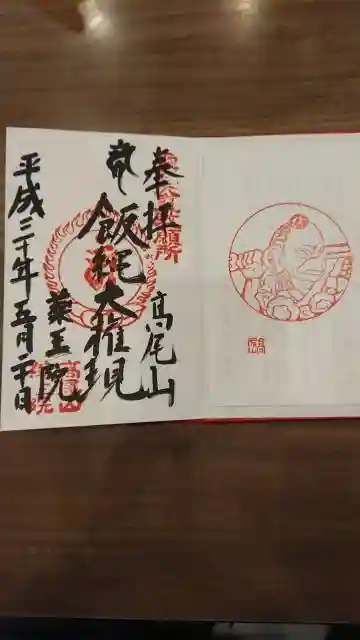 奉拝
高尾山
飯縄大権現
薬王院
平成三十年五月二十日